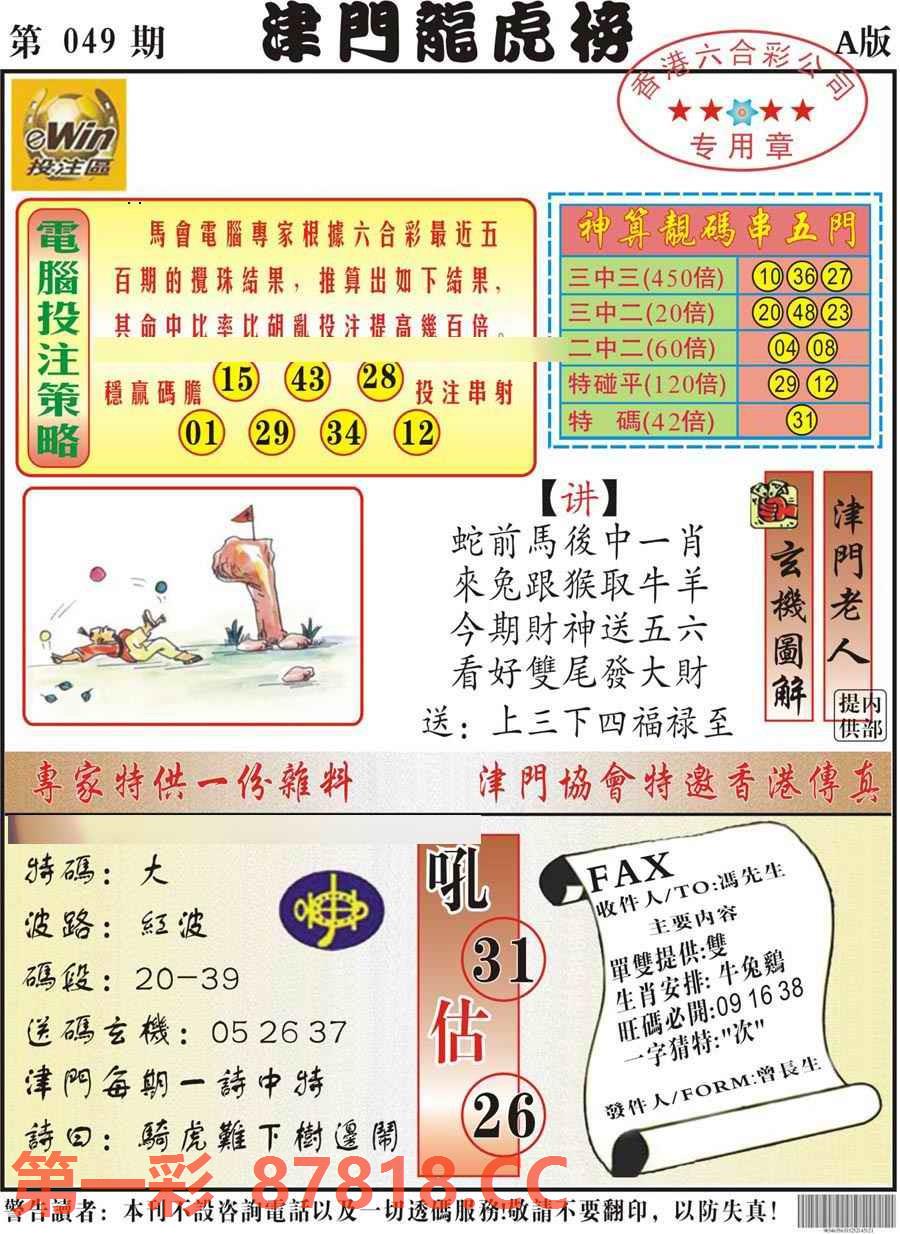 第 049 期
津門龍虎榜
A版
香港六合彩公司
专用章
eWin
投注區
電腦投注策略
馬會電腦專家根據六合彩最近五
百期的攪珠結果，推算出如下結果，
其命中比率比胡亂投注提高幾百倍。
穩贏碼膽 15 43 28 投注串射
01 29 34 12
神算靚碼串五門
三中三(450倍) 10 36 27
三中二(20倍) 20 48 23
二中二(60倍) 04 08
特碰平(120倍) 29 12
特 碼(42倍) 31
【讲】
蛇前馬後中一肖
來兔跟猴取牛羊
今期財神送五六
看好雙尾發大財
送：上三下四福禄至
玄機圖解
津門老人
内部提供
專家特供一份雜料
津門協會特邀香港傳真
特碼：大
波路：紅波
碼段：20-39
送碼玄機：05 26 37
津門每期一詩中特
詩曰：騎虎難下樹邊鬧
吼
31
估
26
FAX
收件人/TO:馮先生
主要内容
單雙提供:雙
生肖安排: 牛兔鷄
旺碼必開:09 16 38
一字猜特:"次"
發件人/FORM:曾長生
第一彩 87818.CC
警告讀者：本刊不設咨詢電話以及一切透碼服務!敬請不要翻印，以防失真！